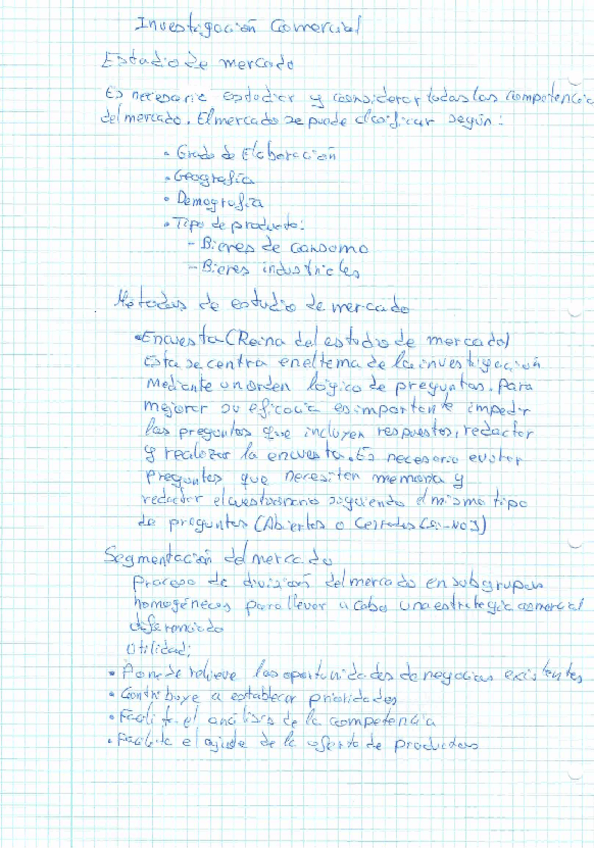 Investigación Comercial
Estudio de mercado
Es necesario estudiar y considerar todas las competencia
del mercado. El mercado se puede clasificar según:
• Grado de Elaboración
• Geografía
• Demografía
• Tipo de producto:
- Bienes de consumo
- Bienes industriales
Metodos de estudio de mercado
• Encuesta (Reina del estudio de mercado)
Esta se centra en el tema de la investigación
Mediante un orden lógico de preguntas. Para
mejorar su eficacia es importante impedir
las preguntas que incluyen respuestas, redactar
y realizar la encuesta. Es necesario evitar
preguntas que necesiten memoria y
redactar el cuestionario siguiendo el mismo tipo
de preguntas (Abiertas o Cerradas (Si-No))
Segmentación del mercado
Proceso de división del mercado en subgrupos
homogéneos para llevar a cabo una estrategia comercial
diferenciada
Utilidad:
• Pone de relieve las oportunidades de negocios existentes
• Contribuye a establecer prioridades
• Facilita el análisis de la competencia
• Facilita el ajuste de la oferta de productos